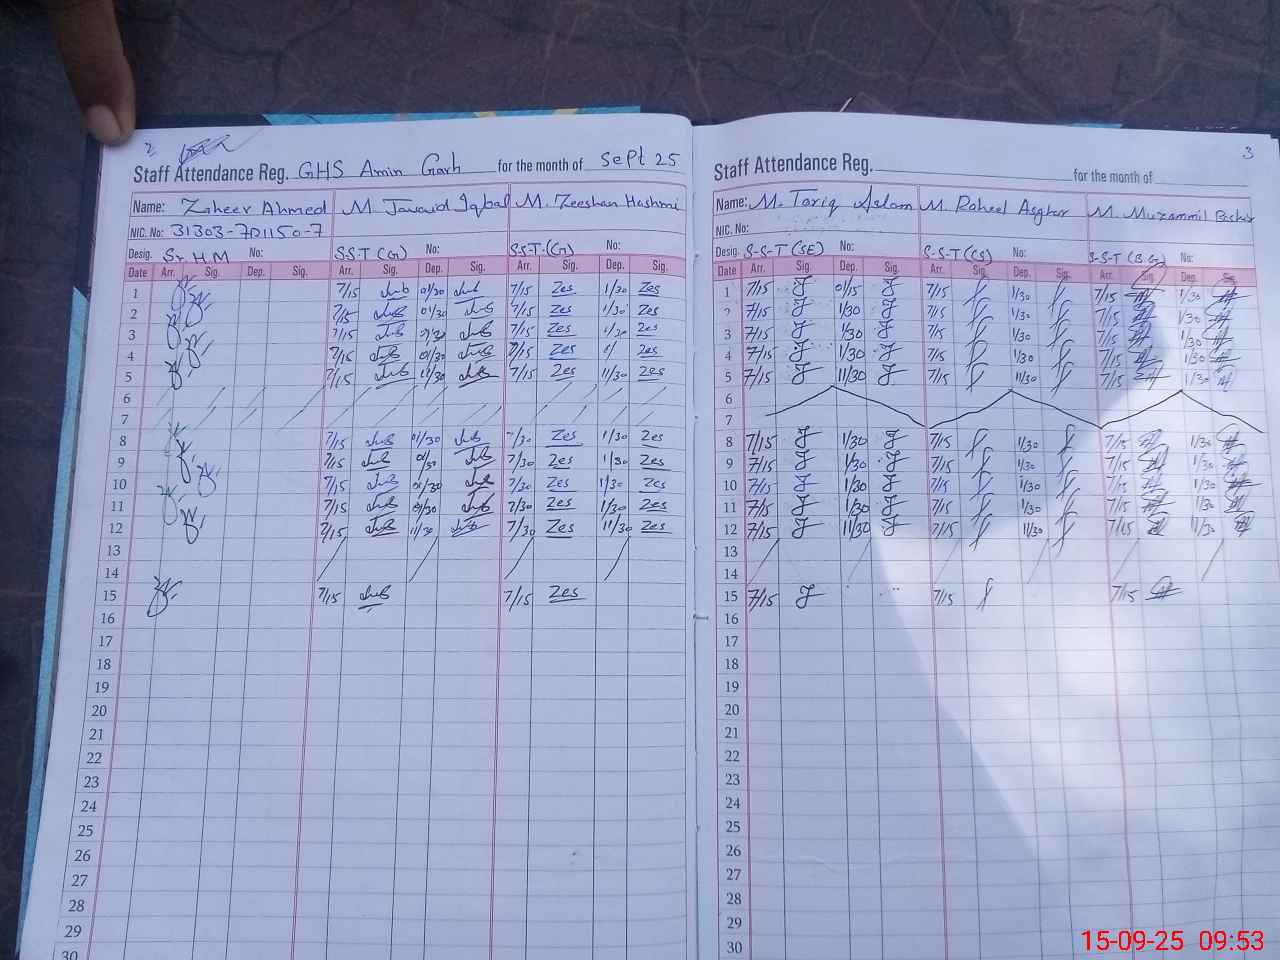 2
Staff Attendance Reg. GHS Amin Garh for the month of Sept 25
Name: Zaheer Ahmed M. Javaid Iqbal M. Zeeshan Hashmi
NIC. No: 31303-701150-7
Desig. Sr. H M No: S.S.T (G) No: S.S.T.(G) No:
Date Arr. Sig. Dep. Sig. Arr. Sig. Dep. Sig. Arr. Sig. Dep. Sig.
1 7/15 01/30 7/15 Zes 1/30 Zes
2 7/15 01/30 7/15 Zes 1/30 Zes
3 7/15 01/30 7/15 Zes 1/30 Zes
4 7/15 01/30 7/15 Zes 1/ Zes
5 7/15 11/30 7/15 Zes 11/30 Zes
6
7
8 7/15 01/30 7/30 Zes 1/30 Zes
9 7/15 7/30 Zes 1/30 Zes
10 7/15 01/30 7/30 Zes 1/30 Zes
11 7/15 01/30 7/30 Zes 1/30 Zes
12 7/15 11/30 7/30 Zes 11/30 Zes
13
14
15 7/15 7/15 Zes
16
17
18
19
20
21
22
23
24
25
26
27
28
29
30
3
Staff Attendance Reg. for the month of
Name: M. Tariq Aslam M. Raheel Asghar M. Muzammil Bashir
NIC. No:
Desig. S-S-T (SE) No: S-S-T (CS) No: S-S-T (B G) No:
Date Arr. Sig. Dep. Sig. Arr. Sig. Dep. Sig. Arr. Sig. Dep. Sig.
1 7/15 01/15 7/15 1/30 7/15 1/30
2 7/15 1/30 7/15 1/30 7/15 1/30
3 7/15 1/30 7/15 1/30 7/15 1/30
4 7/15 1/30 7/15 1/30 7/15 1/30
5 7/15 11/30 7/15 11/30 7/15 1/30
6
7
8 7/15 1/30 7/15 1/30 7/15 1/30
9 7/15 1/30 7/15 1/30 7/15 1/30
10 7/15 1/30 7/15 1/30 7/15 1/30
11 7/15 1/30 7/15 1/30 7/15 1/30
12 7/15 11/30 7/15 11/30 7/15 11/30
13
14
15 7/15 7/15 7/15
16
17
18
19
20
21
22
23
24
25
26
27
28
29
30
15-09-25 09:53